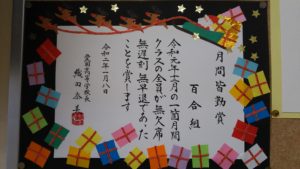 月間皆勤賞
百合組
令和元年十二月の一箇月間
クラスの全員が無欠席
無遅刻 無早退であった
ことを賞します
令和二年一月八日